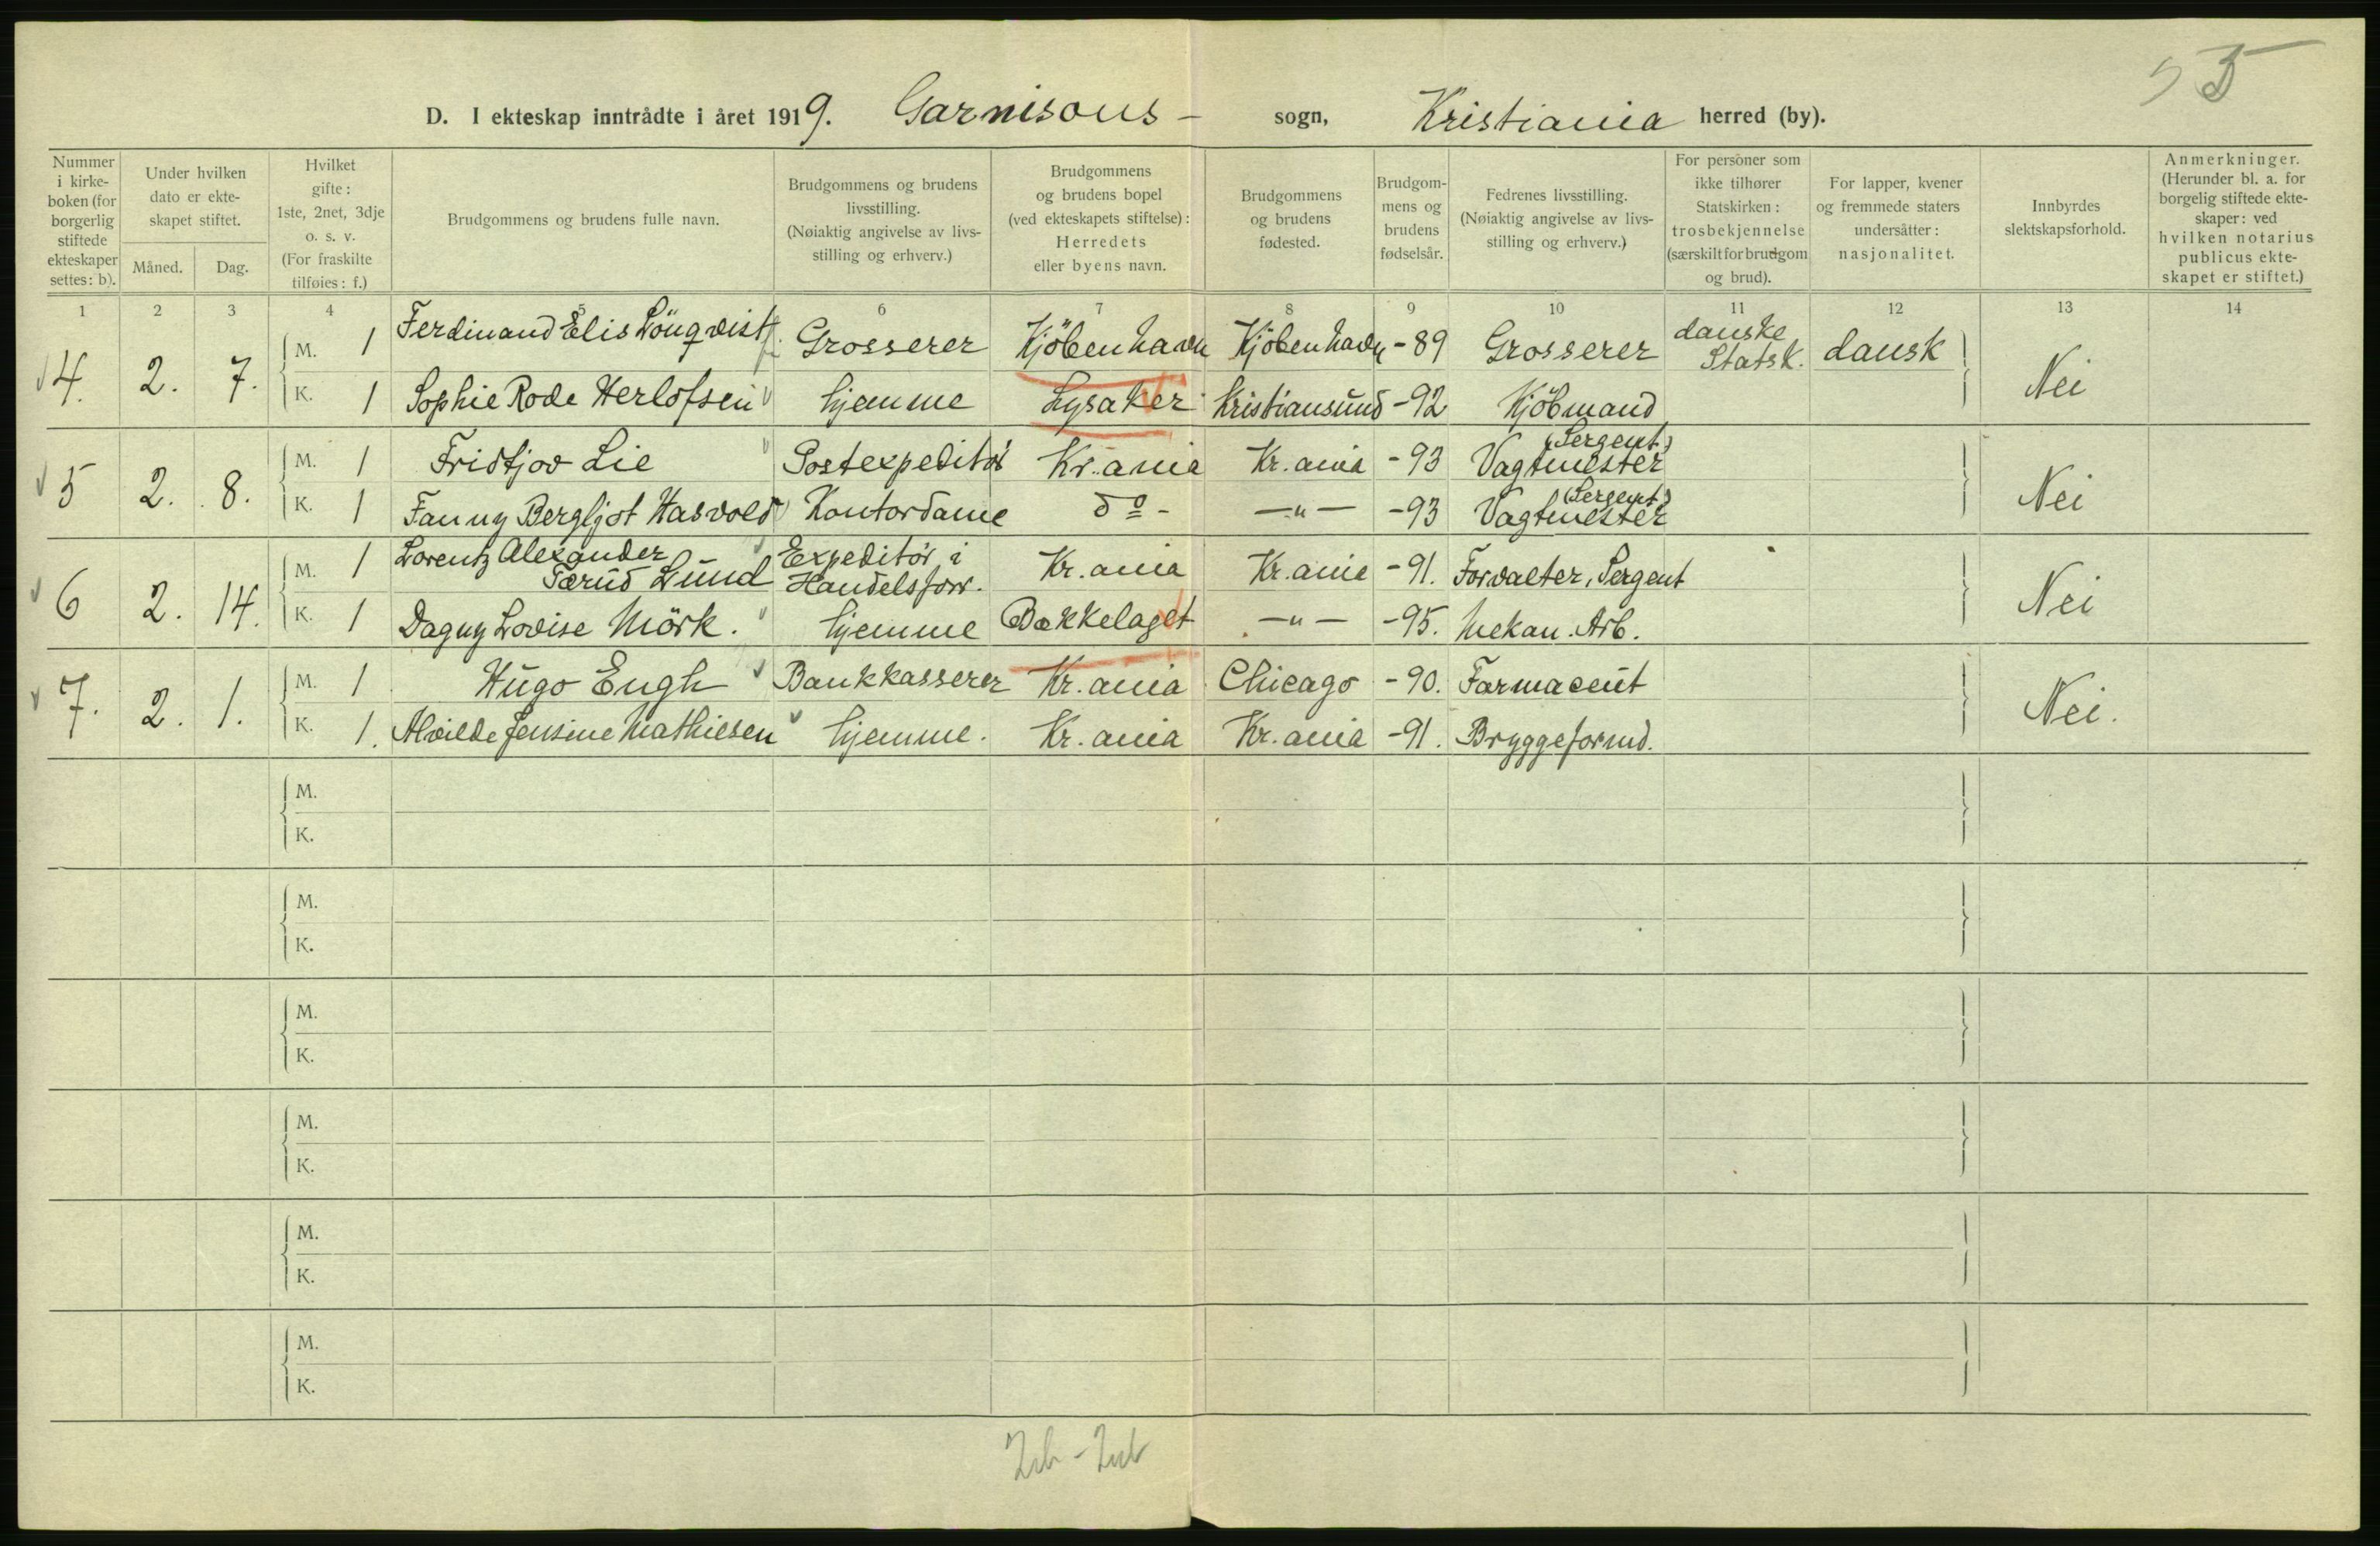 D. I ekteskap inntrådte i året 1919. Garnisons - sogn, Kristiania herred (by).
Nummer i kirke- boken (for borgerlig stiftede ekteskaper settes: b).
Under hvilken dato er ekte- skapet stiftet.
Måned. Dag.
Hvilket gifte: 1ste, 2net, 3dje o. s. v. (For fraskilte tilføies: f.)
Brudgommens og brudens fulle navn.
Brudgommens og brudens livsstilling. (Nøiaktig angivelse av livs- stilling og erhverv.)
Brudgommens og brudens bopel (ved ekteskapets stiftelse): Herredets eller byens navn.
Brudgommens og brudens fødested.
Brudgom- mens og brudens fødselsår.
Fedrenes livsstilling. (Nøiaktig angivelse av livs- stilling og erhverv.)
For personer som ikke tilhører Statskirken: trosbekjennelse (særskilt for brudgom og brud).
For lapper, kvener og fremmede staters undersåtter: nasjonalitet.
Innbyrdes slektskapsforhold.
Anmerkninger. (Herunder bl. a. for borgelig stiftede ekte- skaper: ved hvilken notarius publicus ekte- skapet er stiftet.)
1 2 3 4 5 6 7 8 9 10 11 12 13 14
4. 2. 7. M. 1 Ferdinand Elis Lönqvist Grosserer Kjöbenhavn Kjöbenhavn -89 Grosserer danske Statsk. dansk Nei
K. 1 Sophie Rode Herlofsen hjemme Lysaker Kristiansund -92 Kjöbmand
5 2. 8. M. 1 Fridtjov Lie Postexpeditör Kr.ania Kr.ania -93 Vagtmester (Sergent) Nei
K. 1 Fanny Bergljot Hasvold Kontordame do - —"— -93 Vagtmester (Sergent)
6 2. 14. M. 1 Lorentz Alexander Færud Lund Expeditör i Handelsforr. Kr.ania Kr.ania -91. Forvalter, Sergent Nei
K. 1 Dagny Lovise Mörk. hjemme Bækkelaget —"— -95. Mekan. Arb.
7. 2. 1. M. 1 Hugo Engh Bankkasserer Kr.ania Chicago -90. Farmaceut Nei.
K. 1. Alvilde Jensine Mathiesen hjemme. Kr.ania Kr.ania -91. Bryggeformd.
M.
K.
M.
K.
M.
K.
M.
K.
M.
K.
M.
K.